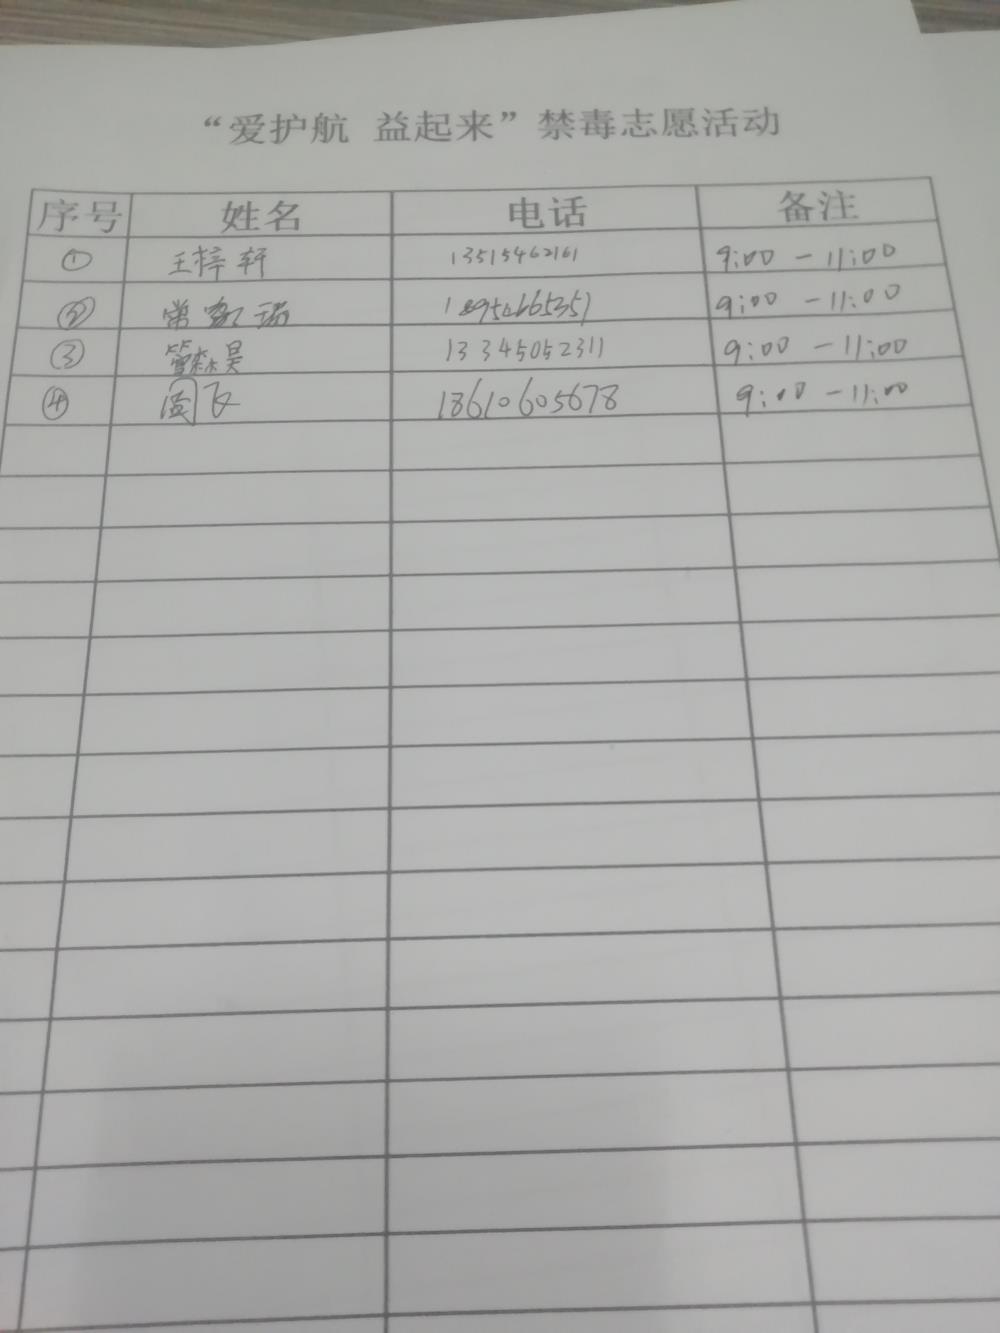 “爱护航 益起来”禁毒志愿活动
序号 姓名 电话 备注
① 王梓轩 13515462161 9:00－11:00
② 常 9:00－11:00
③ 管森昊 13345052311 9:00－11:00
④ 闵飞 18610605678 9:00－11:00